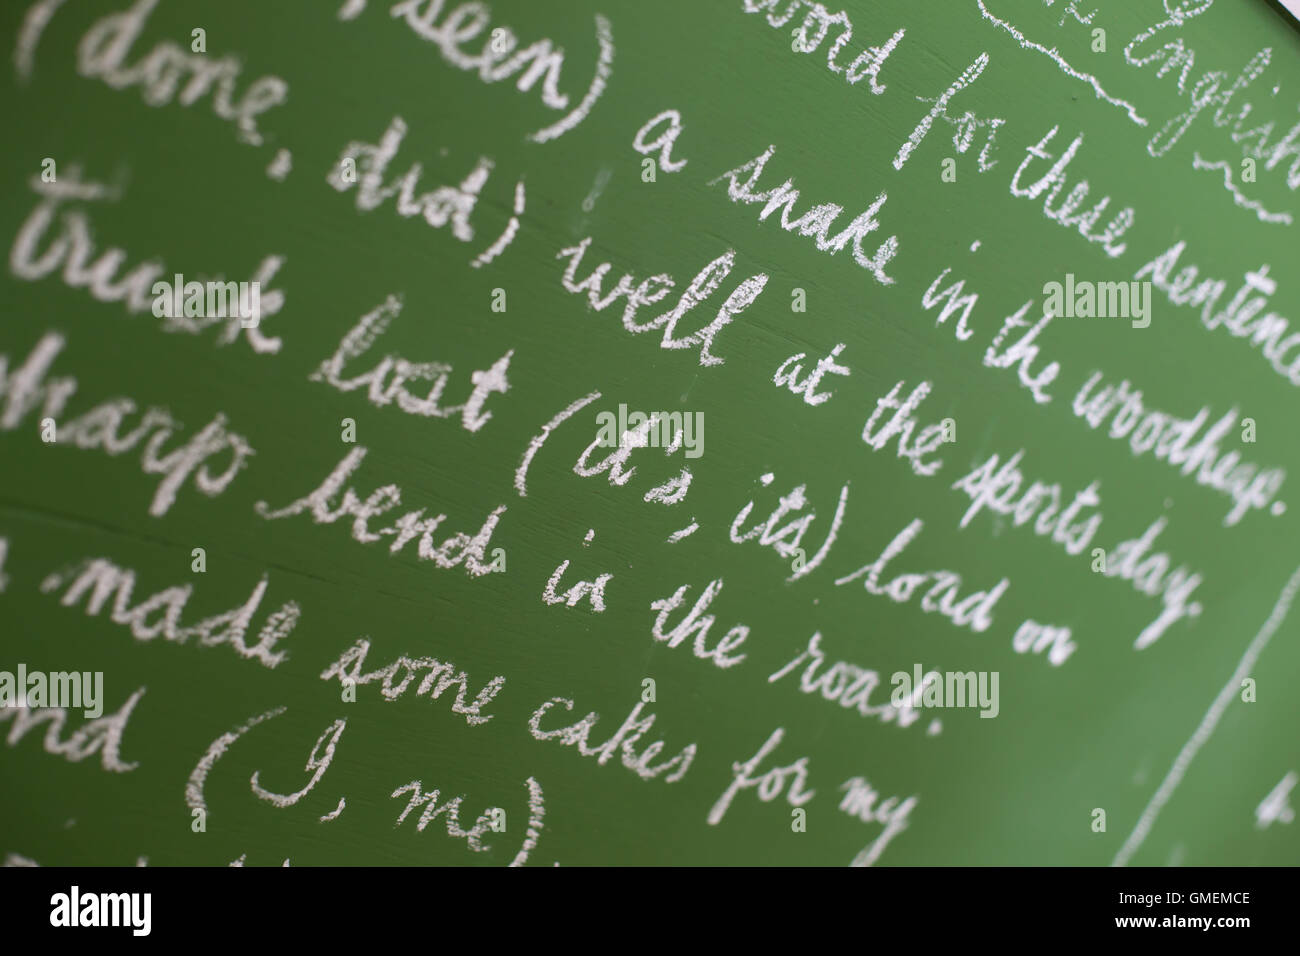 English
word for these sentence
seen) a snake in the woodheap.
(done, did) well at the sports day.
truck lost (it's, its) load on
sharp bend in the road.
made some cakes for my
and (I, me)
alamy
Image ID: GMEMCE
www.alamy.com